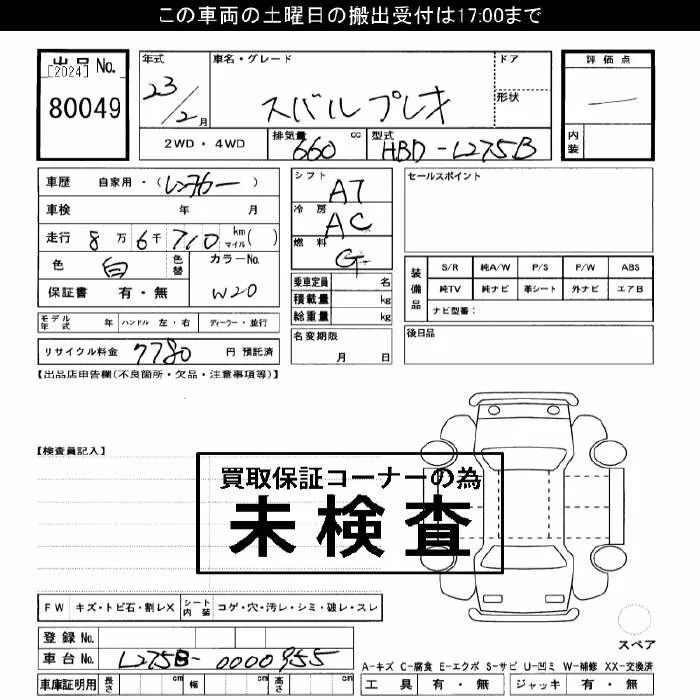 この車両の土曜日の搬出受付は17:00まで
出品 No.
[2024]
80049
年式
23/2月
車名・グレード
スバルプレオ
ドア
形状
評価点
内装
2WD・4WD
排気量
660 cc
型式
HBD-L275B
車歴 自家用・(レンタカー)
車検 年 月
走行 8万6千710 km マイル ( )
色 白 色替 カラーNo. W20
保証書 有・無
シフト AT
冷房 AC
燃料 G
乗車定員 名
積載量 kg
総重量 kg
セールスポイント
装備品
S/R 純A/W P/S P/W ABS
純TV 純ナビ 革シート 外ナビ エアB
ナビ型番:
モデル年式 年 ハンドル 左・右 ディーラー・並行
名変期限 月 日
後日品
リサイクル料金 7780 円 預託済
【出品店申告欄(不良箇所・欠品・注意事項等)】
【検査員記入】
買取保証コーナーの為
未検査
FW キズ・トビ石・割レX シート内装 コゲ・穴・汚レ・シミ・破レ・スレ
登録 No.
車台 No. L275B-0000955
車庫証明用 長さ cm 幅 cm 高さ cm
スペア
A-キズ C-腐食 E-エクボ S-サビ U-凹ミ W-補修 XX-交換済
工具 有・無 ジャッキ 有・無